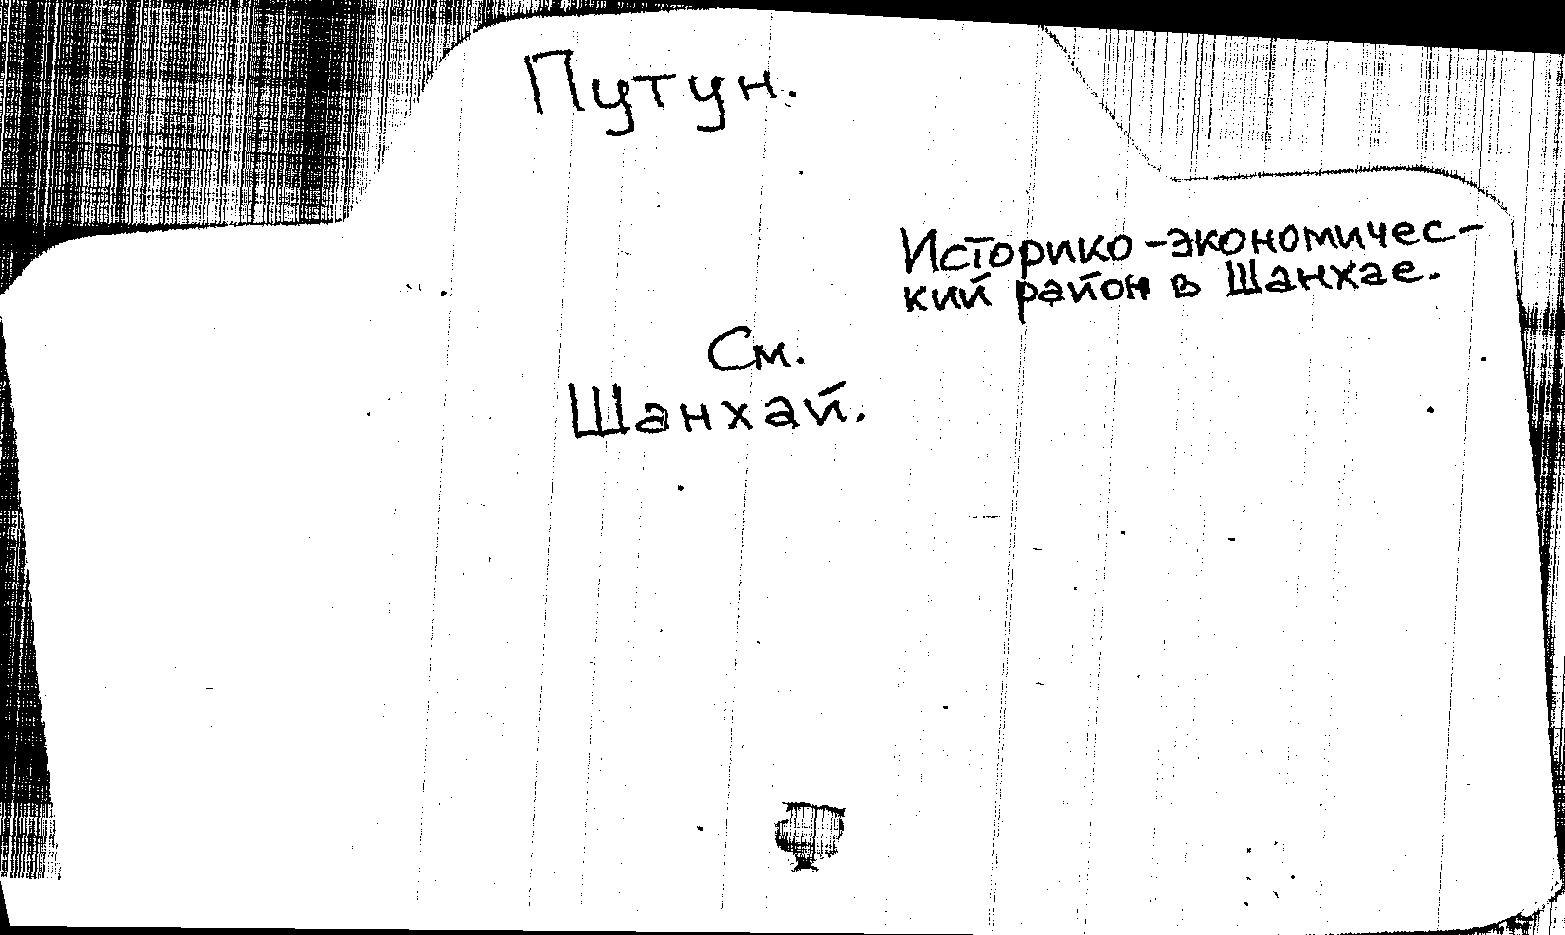 Путун.
Историко-экономичес-
кий район в Шанхае.
См.
Шанхай.